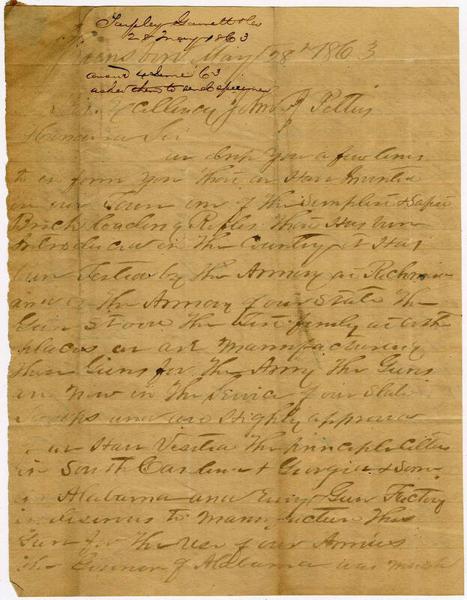 Tarpley Garrett & Co
28 May 1863
May 28th 1863
ansd 4 June 63
asked them to send specimen
Excellency John J Pettus
Sir
we drop you a few lines
to in form you that we Have Invented
in our Town one of the Simplest & Safest
Brich loading Rifles That Has bun
Introduced in The Country it Has
bun Tested by the Armory at Richmond
and in the Armory of our State The
Gun Stood The Test finely at both
places we are Mannufacturing
These Guns for The Army The Guns
are Now in The Service of our State
Troops and are Highly approved
we Have Visited The principle Cities
in South Carlina & Georgia & Som
in Alabama and Evry Gun Factory
is desirous to Mannufacture This
Gun for The Use of our Armies
The Governor of Alabama was much